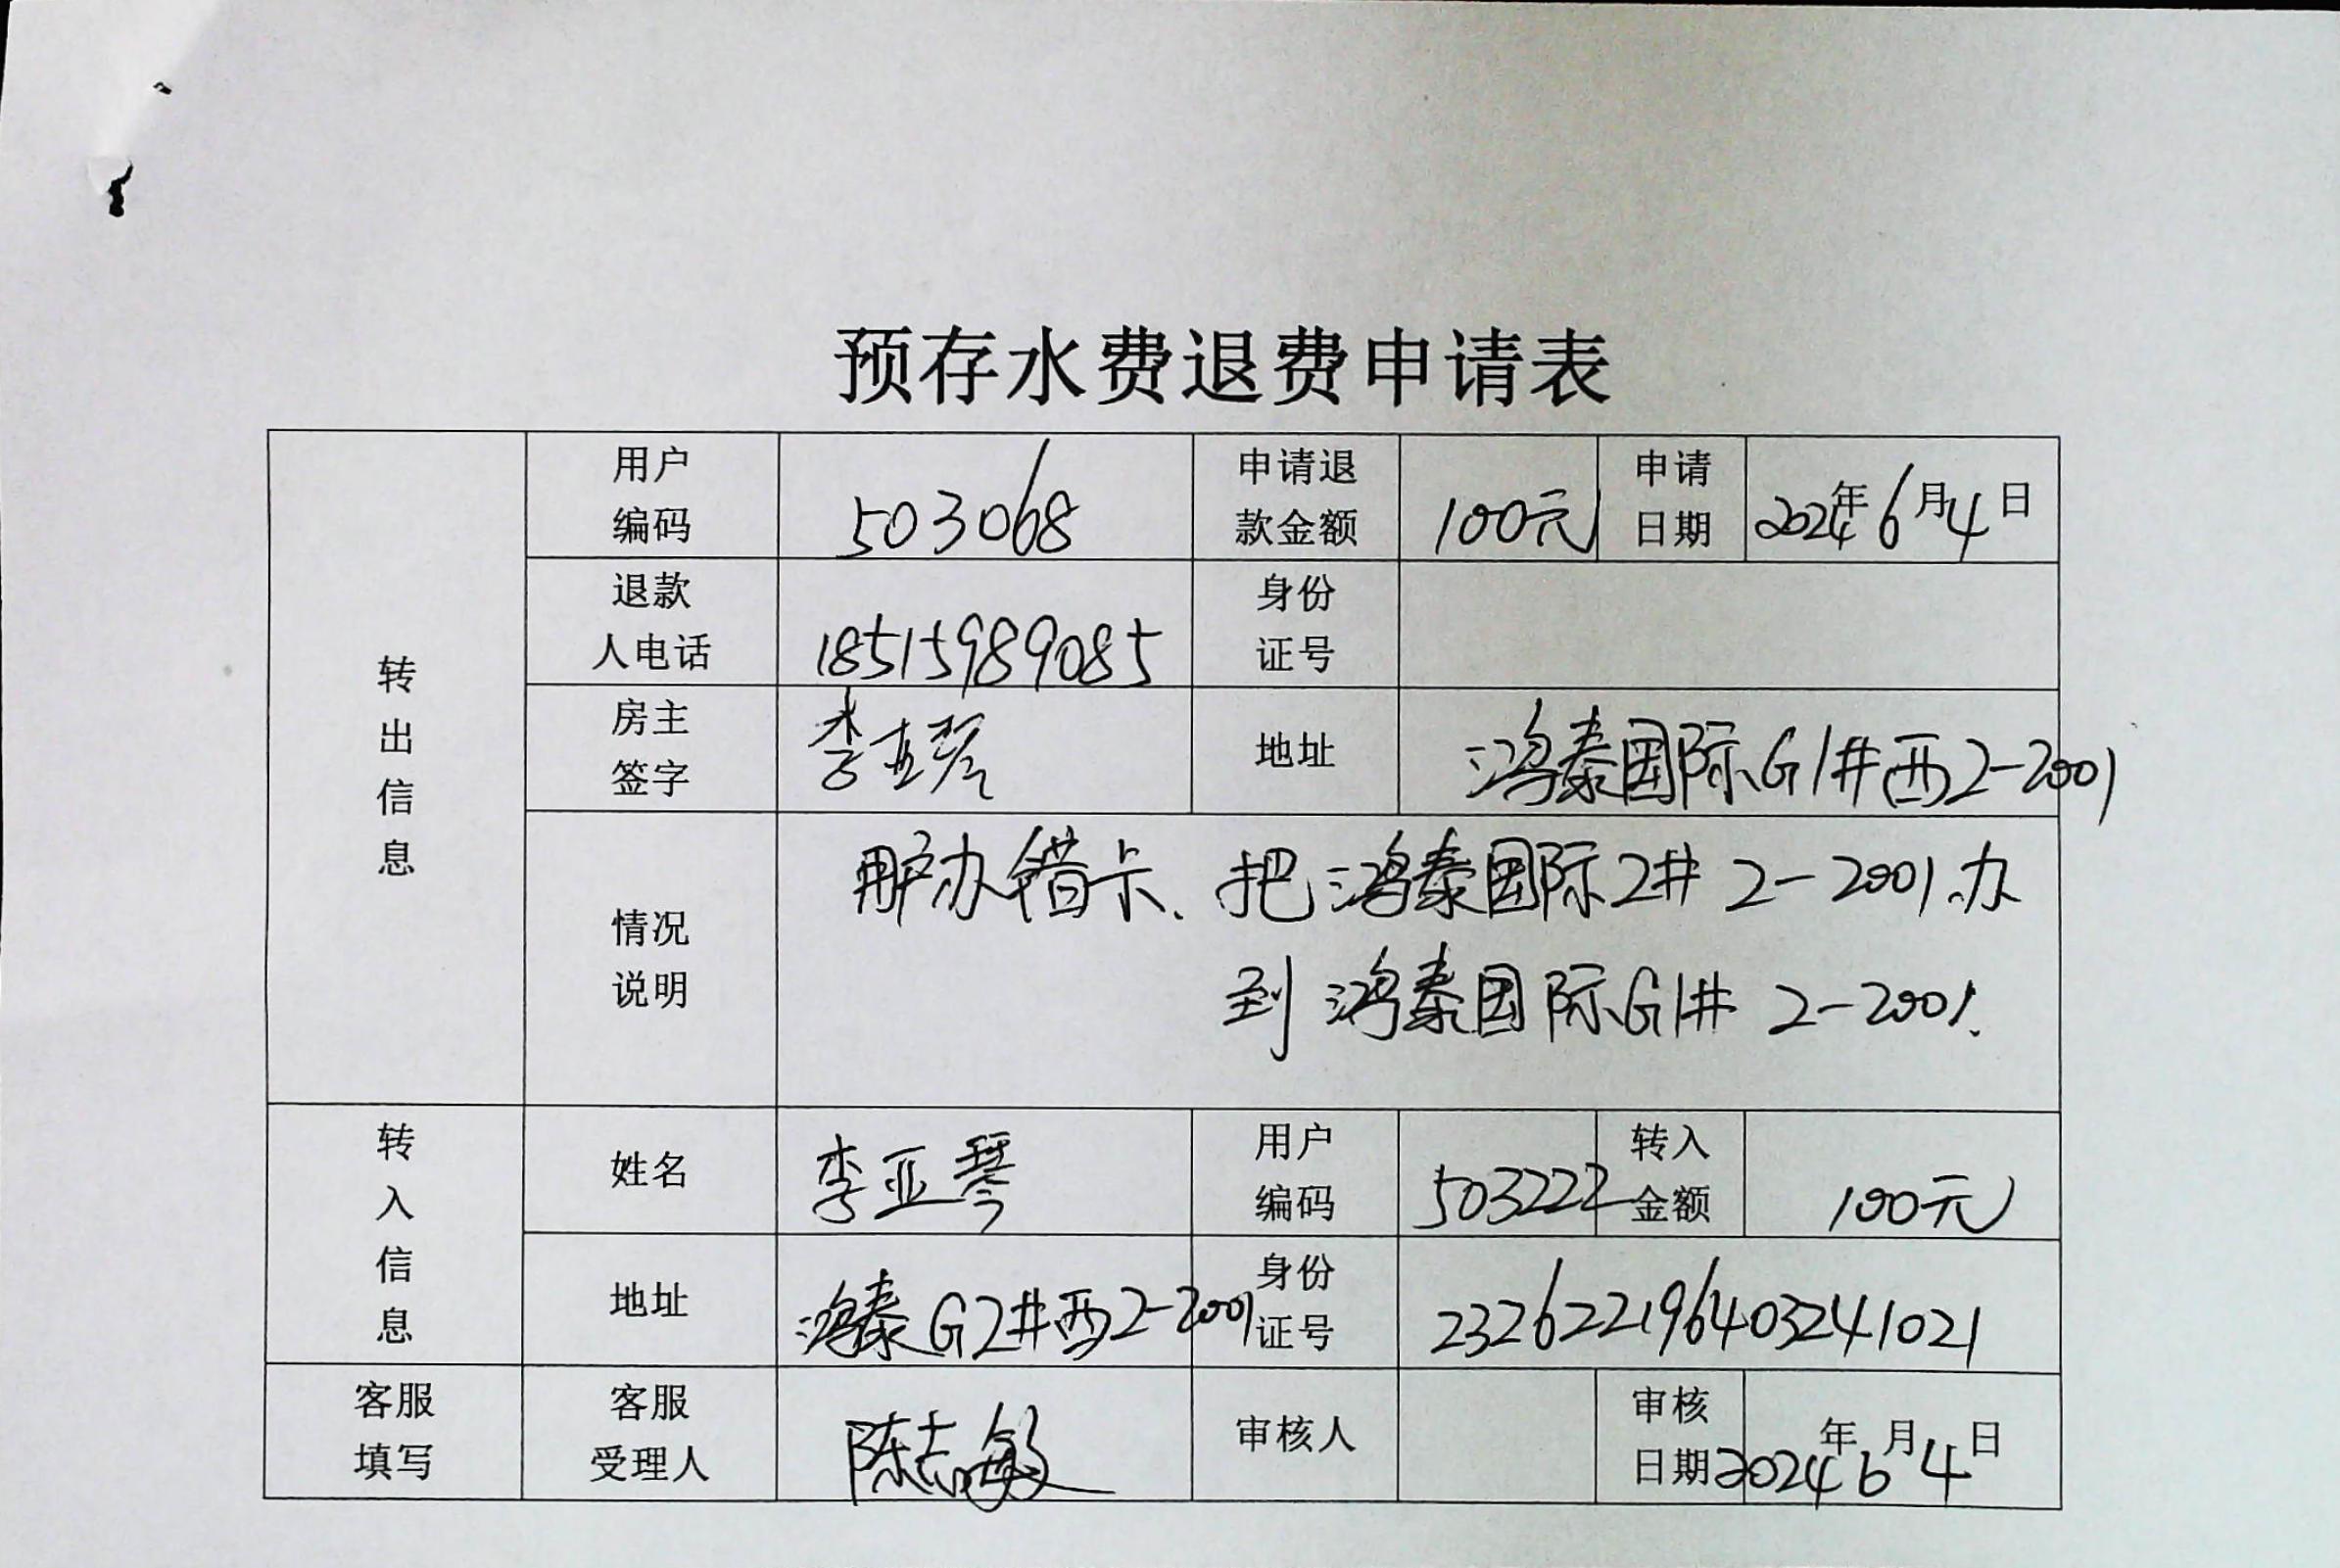 预存水费退费申请表
转出信息
用户编码 503068 申请退款金额 100元 申请日期 2024年6月4日
退款人电话 18515989085 身份证号
房主签字 李亚琴 地址 鸿泰国际G1#西2-2001
情况说明 用户办错卡、把鸿泰国际2# 2-2001.办
到鸿泰国际G1# 2-2001.
转入信息
姓名 李亚琴 用户编码 503222 转入金额 100元
地址 鸿泰G2#西2-2001 身份证号 232622196403241021
客服填写 客服受理人 陈志敏 审核人 审核日期 2024年6月4日